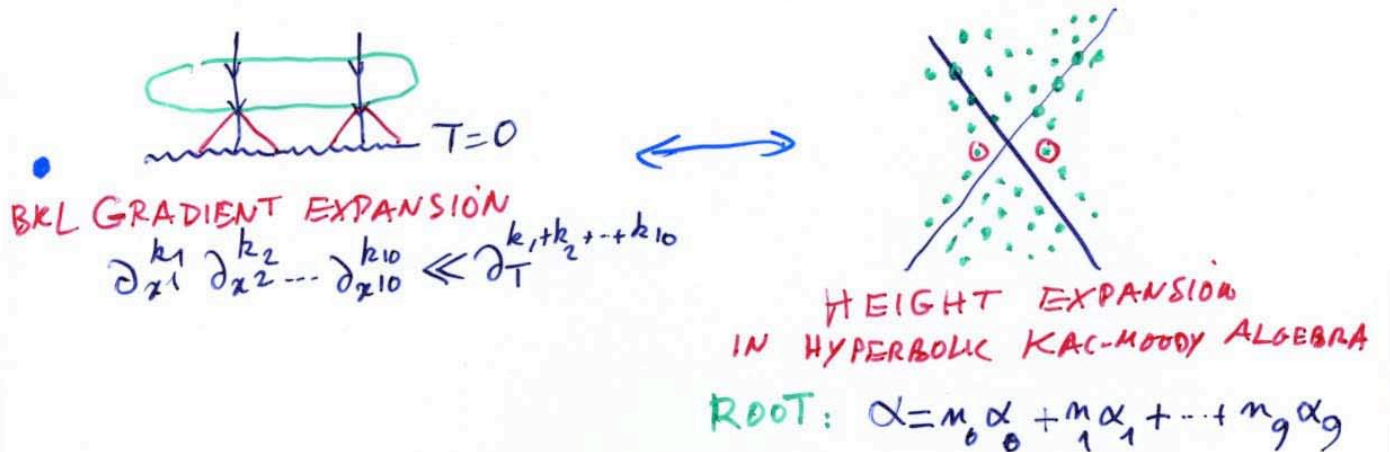 T=0
BKL GRADIENT EXPANSION
∂_{x1}^{k1} ∂_{x2}^{k2} --- ∂_{x10}^{k10} ≪ ∂_T^{k1+k2+--+k10}
HEIGHT EXPANSION
IN HYPERBOLIC KAC-MOODY ALGEBRA
ROOT: α=n_0 α_0 + n_1 α_1 + --- + n_9 α_9